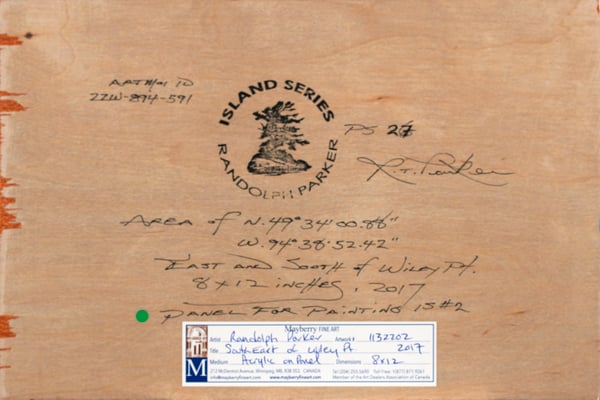 ZZW-894-591
ISLAND SERIES
RANDOLPH PARKER
PS 27
R.T. Parker
AREA of N.49°34'00.88"
W.94°38'52.42"
EAST AND SOUTH of WILEY Pt.
8 x 12 inches, 2017
PANEL FOR PAINTING IS#2
Mayberry FINE ART
Artist Randolph Parker Artwork# 1132202
Title SouthEast of Wiley Pt 2017
Medium Acrylic on Panel Dimensions 8x12
212 McDermot Avenue, Winnipeg, MB, R3B 0S3, CANADA Tel (204) 255.5690 Toll Free: 1(877) 871.9261
info@mayberryfineart.com www.mayberryfineart.com Member of the Art Dealers Association of Canada
M